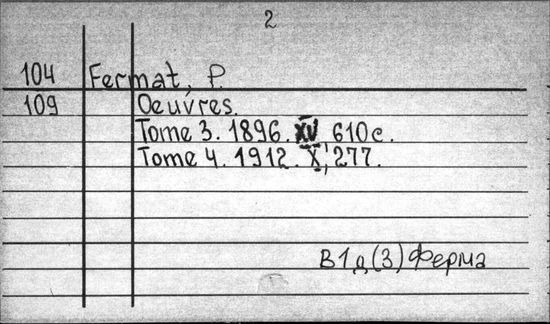 2
104 Fermat, P.
109 Oeuvres.
Tome 3. 1896. XV, 610c.
Tome 4. 1912. X, 277.
В1д(3) Ферма